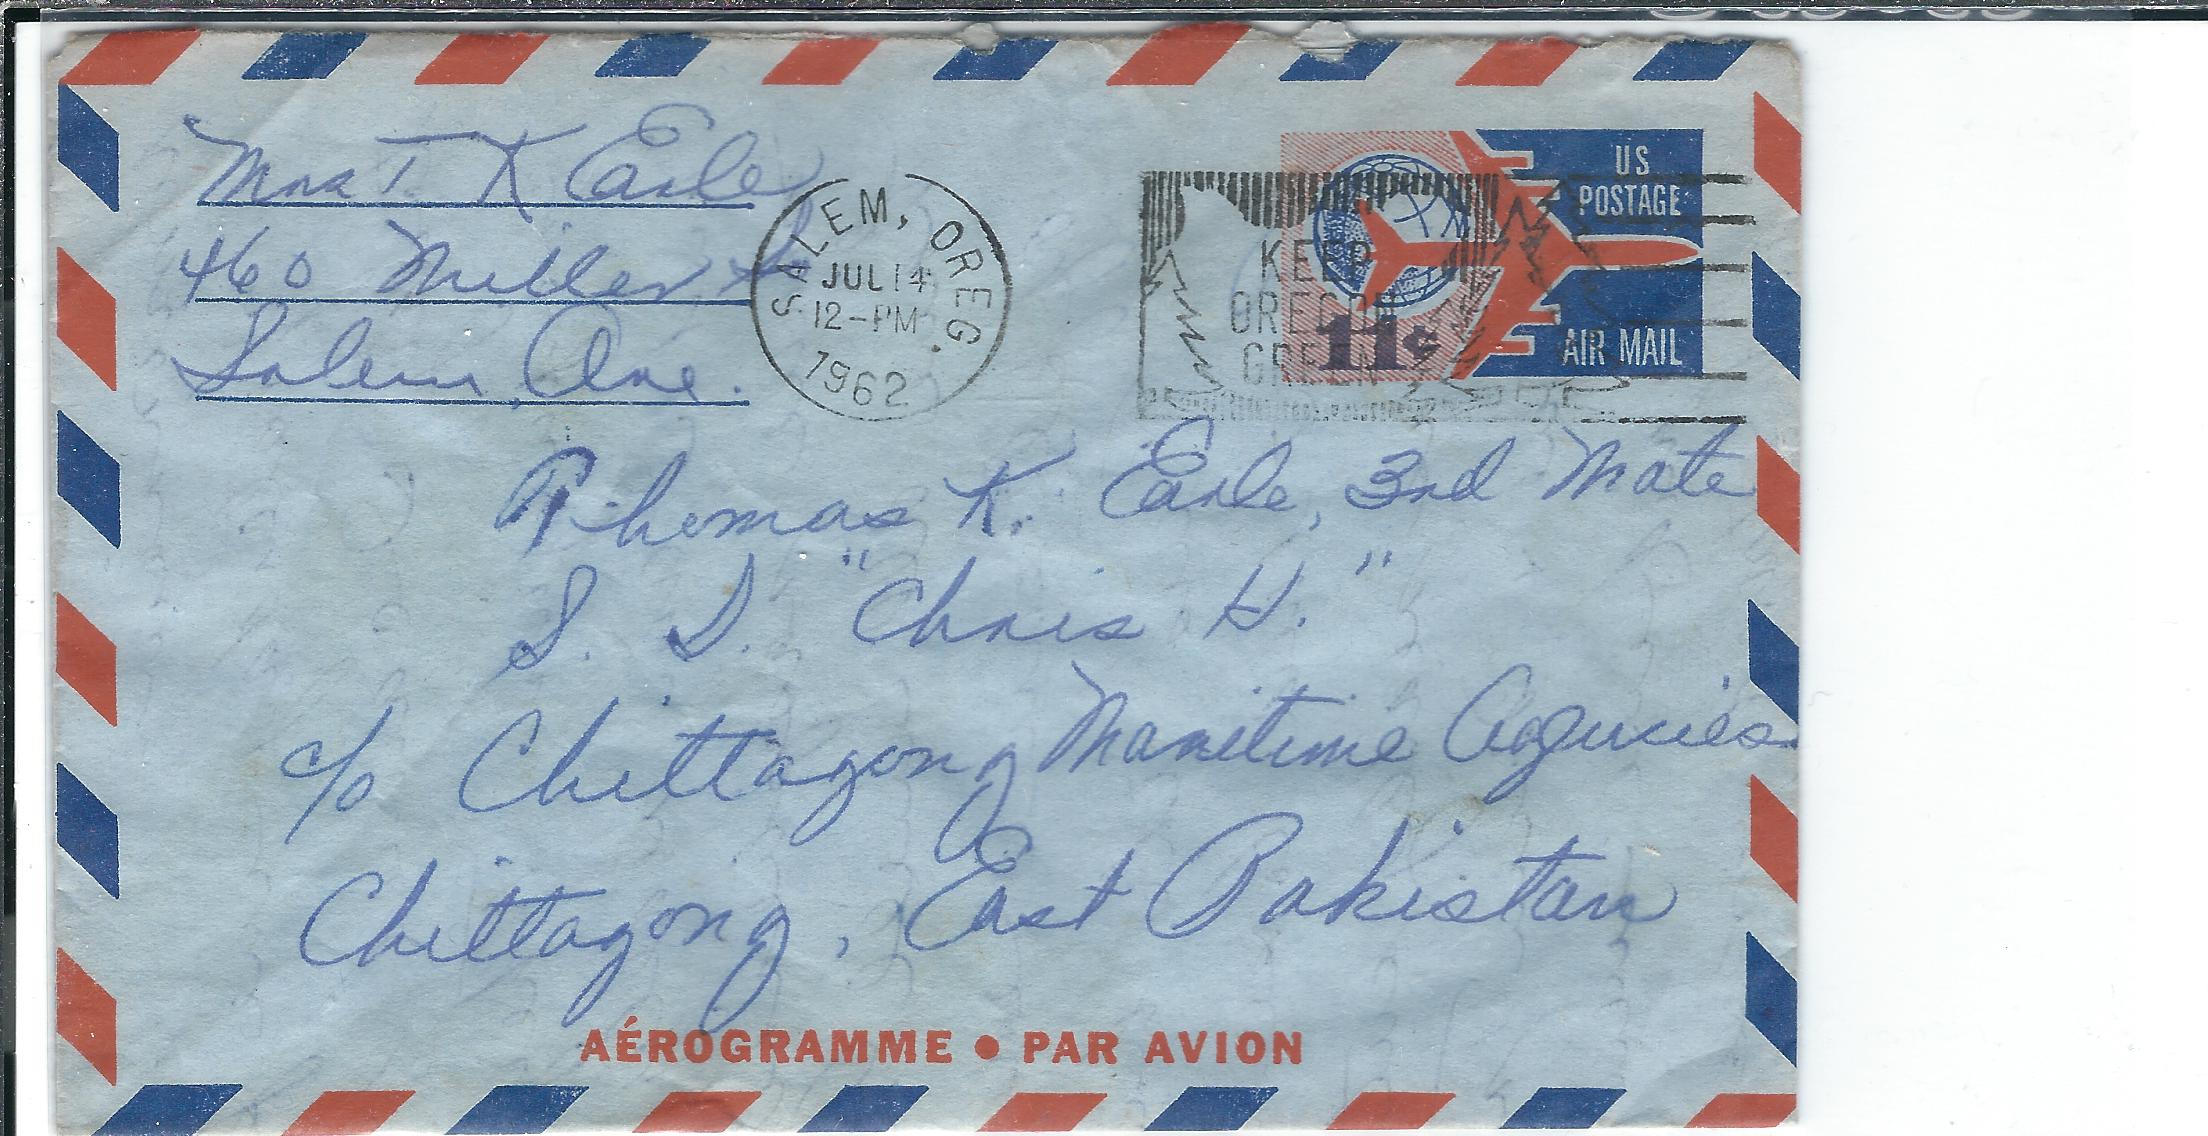 Mrs T K Earle
460 Miller S
Salem, Ore.
SALEM, OREG.
JUL 14
12-PM
1962
KEEP
OREGON
GREEN
US
POSTAGE
11¢
AIR MAIL
Thomas K. Earle, 3rd Mate
S. S. "Chris H."
c/o Chittagong Maritime Agencies
Chittagong, East Pakistan
AÉROGRAMME • PAR AVION